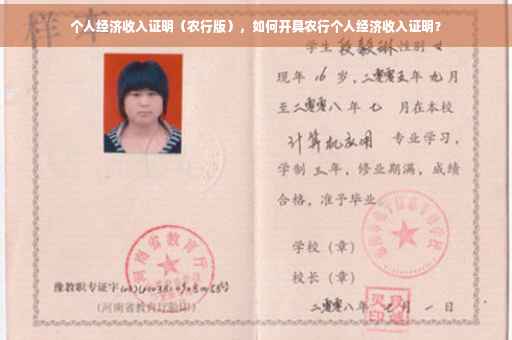 个人经济收入证明（农行版），如何开具农行个人经济收入证明？
样本
学生 段毅琳 性别 女
现年 16 岁，二零零五年 九 月
至二零零八 年 七 月在本校
计算机应用 专业学习，
学制 三 年，修业期满，成绩
合格，准予毕业。
学校（章）
校长（章）
二零零八年 七 月 一 日
河南省教育厅
豫教职专证字
（河南省教育厅验印）